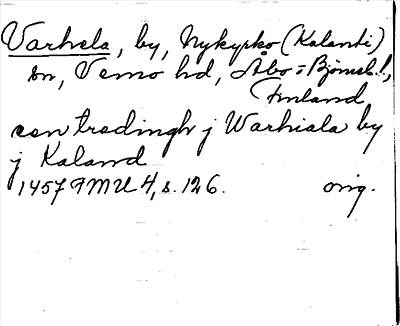 Varhela, by, Nykyrko (Kalanti)
sn, Vemo hd, Åbo-Björneb. l.,
Finland
een tredingh j Warhiala by
j Kaland
1457 FMU 4, s. 126. orig.